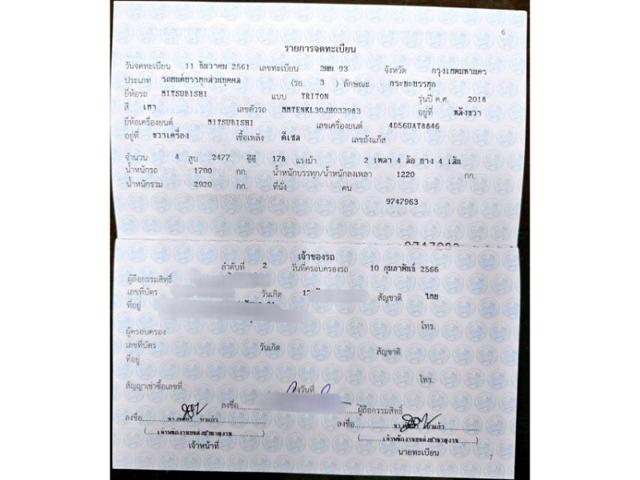 6
รายการจดทะเบียน
วันจดทะเบียน 11 ธันวาคม 2561 เลขทะเบียน 93 จังหวัด กรุงเทพมหานคร
ประเภท รถยนต์บรรทุกส่วนบุคคล (รย. 3 ) ลักษณะ กระบะบรรทุก
ยี่ห้อรถ MITSUBISHI แบบ TRITON รุ่นปี ค.ศ. 2018
สี เทา เลขตัวรถ MMTENKL30JH032983 อยู่ที่ หลังขวา
ยี่ห้อเครื่องยนต์ MITSUBISHI เลขเครื่องยนต์ 4D56UAT8846
อยู่ที่ ขวาเครื่อง เชื้อเพลิง ดีเซล เลขถังแก๊ส
จำนวน 4 สูบ 2477 ซีซี 178 แรงม้า 2 เพลา 4 ล้อ ยาง 4 เส้น
น้ำหนักรถ 1700 กก. น้ำหนักบรรทุก/น้ำหนักลงเพลา 1220 กก.
น้ำหนักรวม 2920 กก. ที่นั่ง คน
9747963
เจ้าของรถ
ลำดับที่ 2 วันที่ครอบครองรถ 10 กุมภาพันธ์ 2566
ผู้ถือกรรมสิทธิ์
เลขที่บัตร วันเกิด สัญชาติ ไทย
ที่อยู่
โทร.
ผู้ครอบครอง
เลขที่บัตร วันเกิด สัญชาติ
ที่อยู่
โทร.
สัญญาเช่าซื้อเลขที่ ลงวันที่
ลงชื่อ ผู้ถือกรรมสิทธิ์
ลงชื่อ ลงชื่อ
เจ้าหน้าที่ นายทะเบียน
7